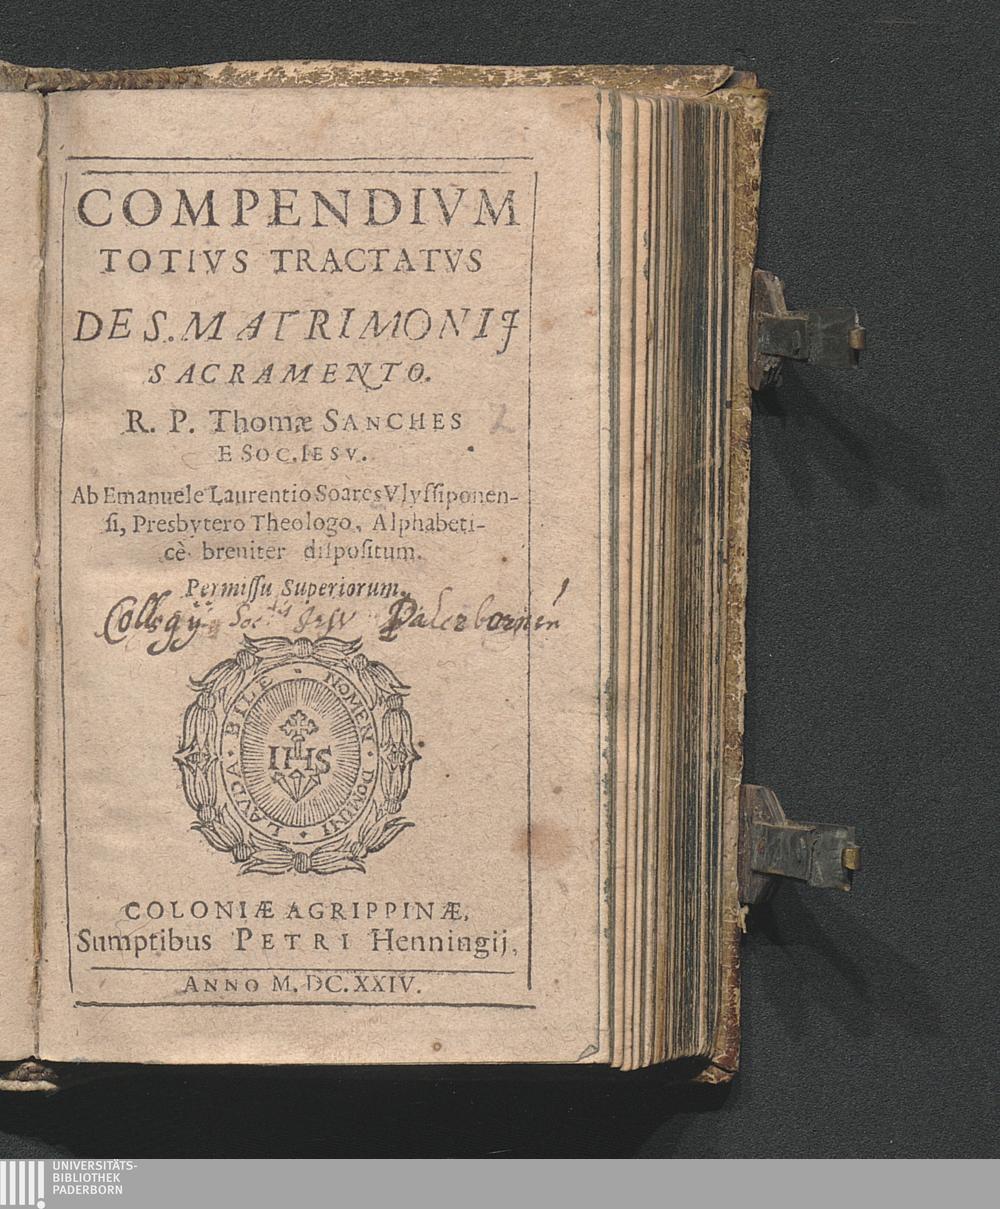 COMPENDIVM
TOTIVS TRACTATVS
DE S. MATRIMONIJ
SACRAMENTO.
R. P. Thomæ SANCHES
E SOC. IESV.
Ab Emanuele Laurentio Soares Vlyſſiponen-
ſi, Presbytero Theologo, Alphabeti-
cè breuiter diſpoſitum.
Permiſſu Superiorum.
Collegij Soctis Jesu Paderbornen
LAVDABILE · NOMEN · DOMINI ·
IHS
COLONIÆ AGRIPPINÆ,
Sumptibus PETRI Henningij,
ANNO M. DC. XXIV.
2
UNIVERSITÄTS-
BIBLIOTHEK
PADERBORN